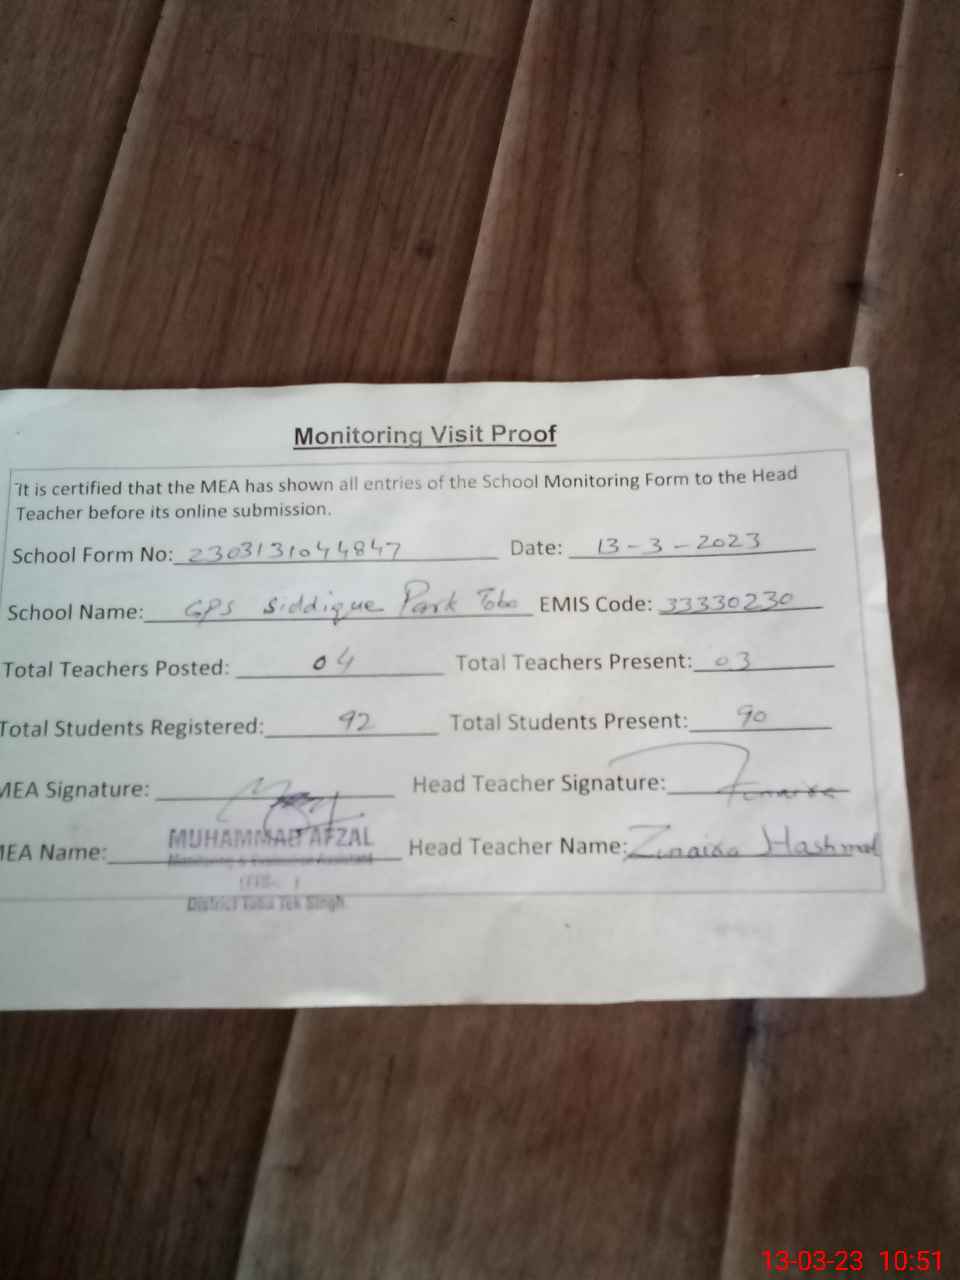 Monitoring Visit Proof
It is certified that the MEA has shown all entries of the School Monitoring Form to the Head
Teacher before its online submission.
School Form No: 2303131044847 Date: 13-3-2023
School Name: GPS Siddique Park Toba EMIS Code: 33330230
Total Teachers Posted: 04 Total Teachers Present: 03
Total Students Registered: 92 Total Students Present: 90
MEA Signature: Head Teacher Signature:
MEA Name: MUHAMMAD AFZAL Head Teacher Name: Hashmat
Monitoring & Evaluation Assistant
District Toba Tek Singh
13-03-23 10:51